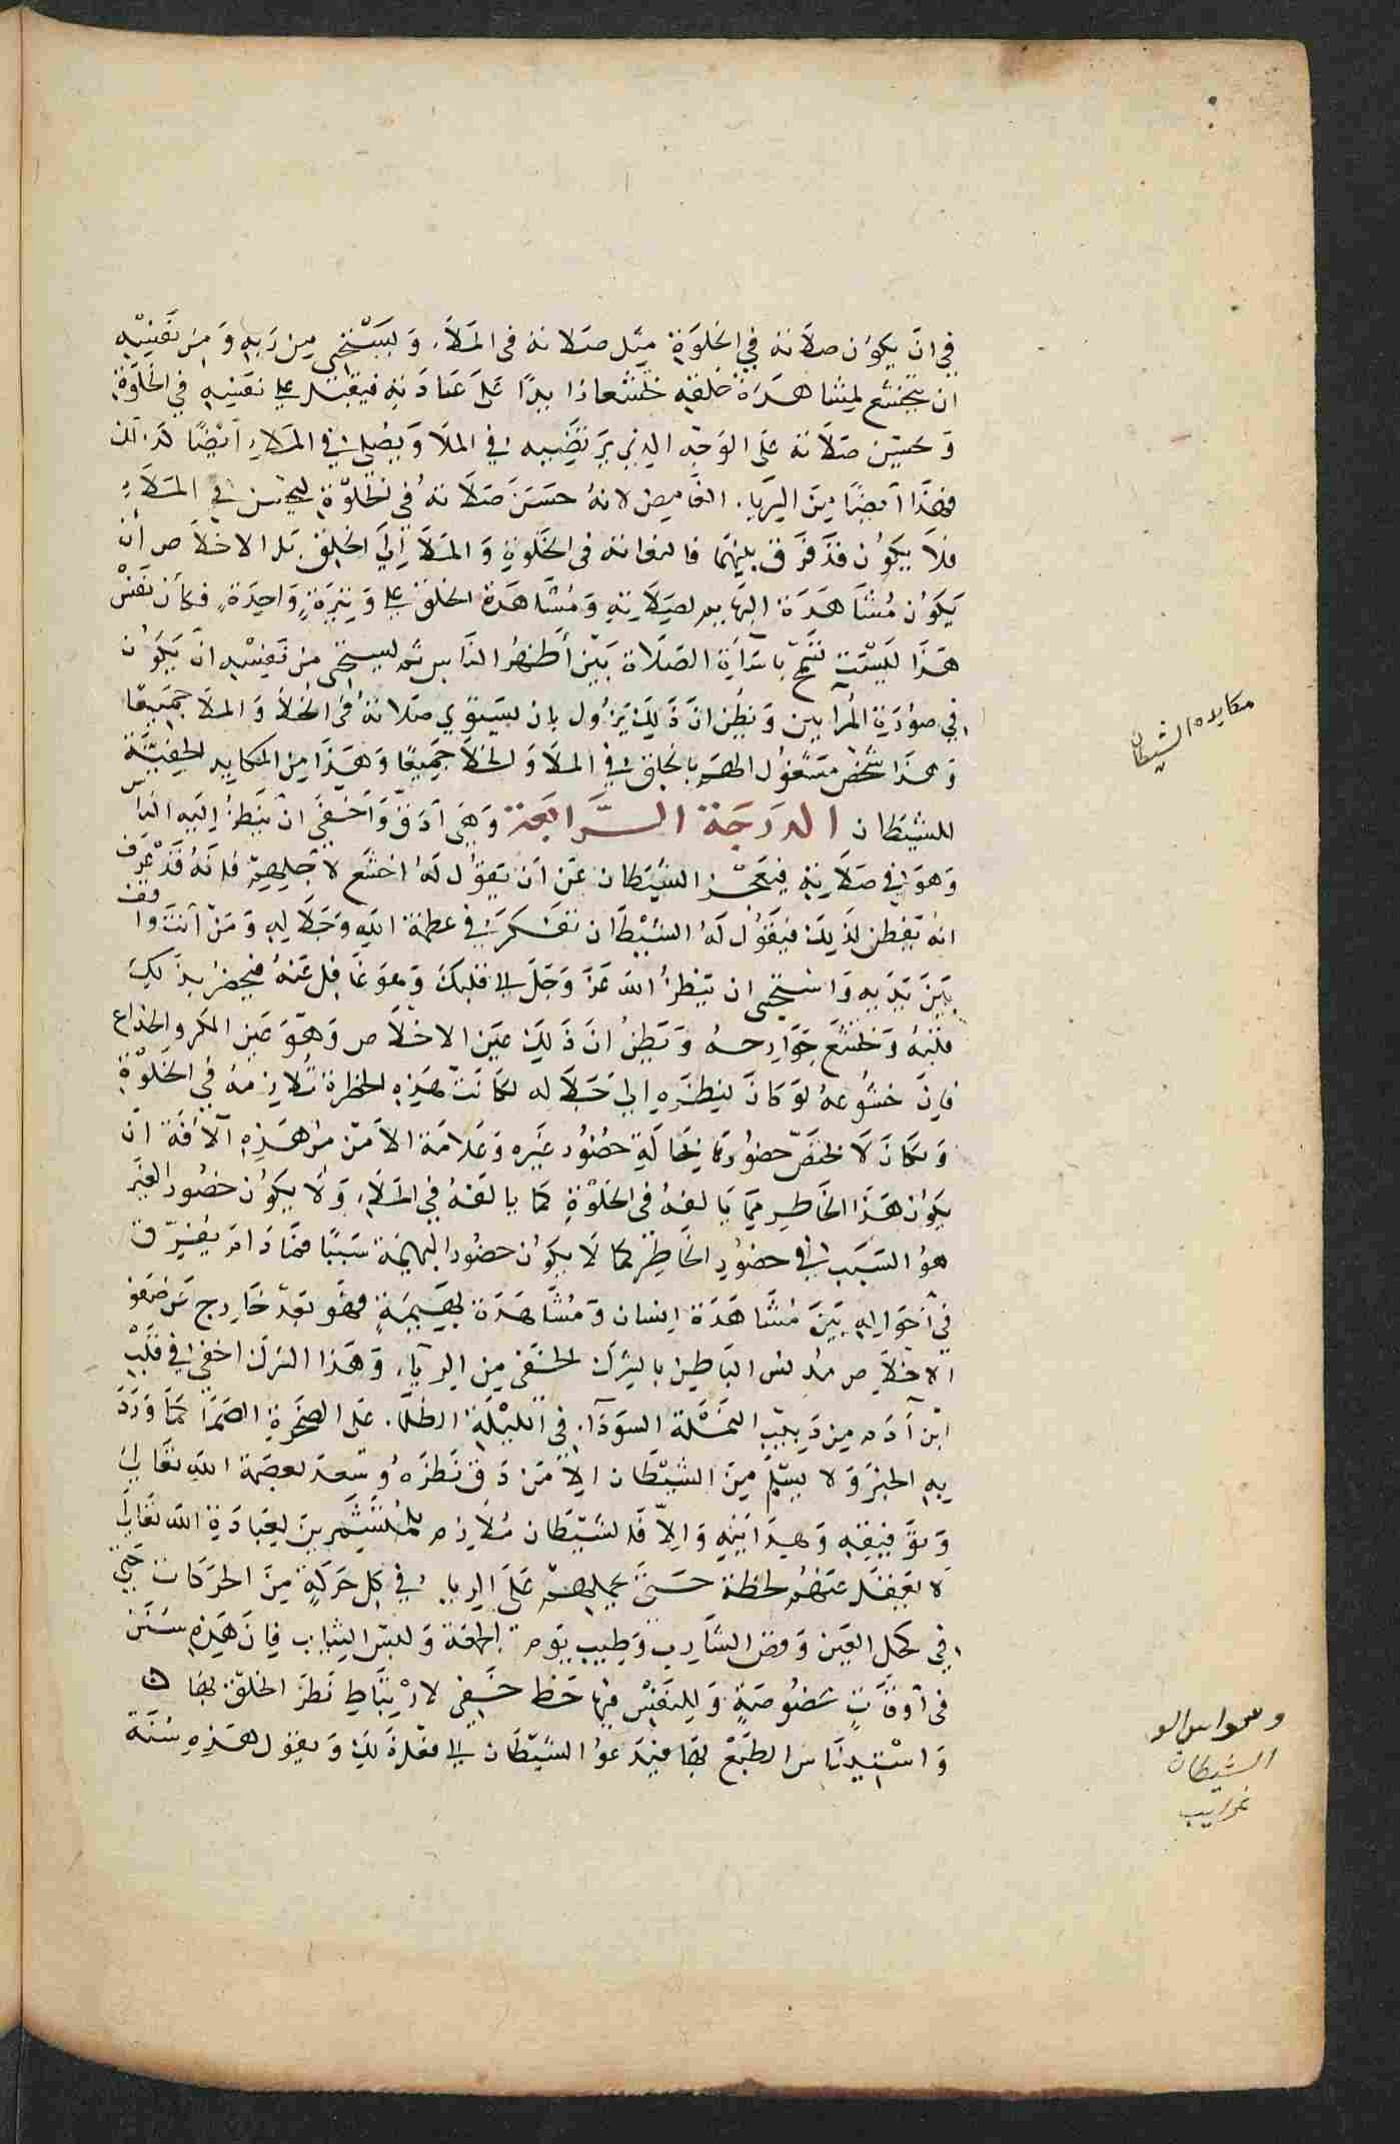 في ان يكون صلاته في الخلوة مثل صلاته في الملأ. ويستحي من ربه ومن نفسه
ان يخشع لمشاهدة خلقه تخشعا زايدًا على عادته فيقبل على نفسه في الخلوة
ويحسن صلاته على الوجه الذي يرتضيه في الملا ويصلي في الملاء ايضًا كذلك
فهذا ايضًا من الريا. الغامض لانه حسن صلاته في الخلوة ليحسن في الملاء
فلا يكون قد فرق بينهما فالتفاته في الخلوة والملأ إلى الخلق بل الاخلاص ان
يكون مشاهدة البهايم لصلاته ومشاهدة الخلق على وتيرة واحدة فكأن نفس
هذا ليست تسمح باساة الصلاة بين أظهر الناس ثم ليستحي من نفسه ان يكون
في صورة المرايين ويظن ان ذلك يزول بان يستوي صلاته في الخلأ والملأ جميعًا
وهذا شخص مشغول الهم بالخلق في الملا والخلا جميعًا وهذا من المكايد الخفية
للشيطان الدرجة الرابعة وهي ادق وأخفى ان ينظر إليه الناس
وهو في صلاته فيعجز الشيطان عن ان يقول له اخشع لاجلهم فانه قد عرف
انه تفطن لذلك فيقول له الشيطان تفكر في عظمة الله وجلاله ومن انت واقف
بين يديه واستحي ان ينظر الله عز وجل الى قلبك وهو غافل عنه فيحضر بذلك
قلبه وتخشع جوارحه ويظن ان ذلك عين الاخلاص وهو عين المكر والخداع
فان خشوعه لو كان لينظره إلى جلاله لكانت هذه الخطرة تلازمه في الخلوة
ولكان لا يختص حضورها بحالة حضور غيره وعلامة الامن من هذه الآفة ان
يكون هذا الخاطر مما يالفه في الخلوة كما يالفه في الملاء ولا يكون حضور الغير
هو السبب في حضور الخاطر كما لا يكون حضور البهيمة سببًا فما دام يفرق
في أحواله بين مشاهدة انسان ومشاهدة بهيمة فهو بعد خارج عن صفو
الاخلاص مدنس الباطن بالشرك الخفي من الرياء. وهذا الشرك اخفى في قلب
ابن آدم من دبيب النملة السوداء. في الليلة الظلماء. على الصخرة الصما كما ورد
به الخبر ولا يسلم من الشيطان إلا من دق نظره وسعد بعصمة الله تعالى
وتوفيقه وهدايته وإلا فالشيطان ملازم للمتشمرين لعبادة الله تعالى
لا يغفل عنهم لحظة حتى يحملهم على الريا. في كل حركة من الحركات حتى
في كحل العين وقص الشارب وطيب يوم الجمعة ولبس الثياب فان هذه سنن
في أوقات مخصوصة وللنفس فيها حظ خفي لارتباط نظر الخلق بها
واستيناس الطبع بها فيدعو الشيطان الى فعل ذلك ويقول هذه سنة
مكايده الشيطان
وسواس
الشيطان
غرايب